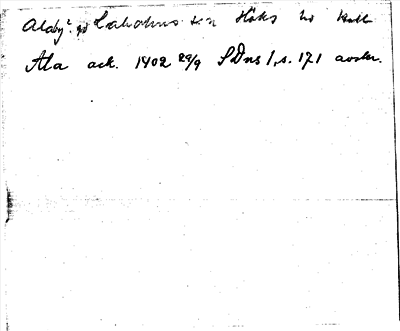 Aldby? gd Laholms ln Höks hd Hall
Ala ack. 1402 29/9 SDns 1, s. 171 avskr.